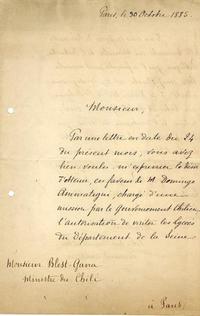 Paris, le 30 Octobre 1885.
Monsieur,
Par une lettre en date du 24
du présent mois, vous avez
bien voulu m'exprimer le désir
d'obtenir, en faveur de M. Domingo
Amunategui, chargé d'une
mission par le Gouvernement Chilien,
l'autorisation de visiter les lycées
du Département de la Seine.
Monsieur Blest-Gana
Ministre du Chili
à Paris.